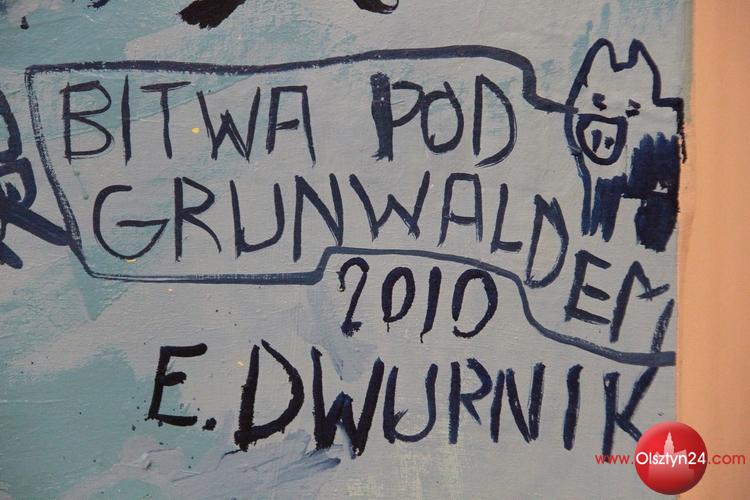 BITWA POD
GRUNWALDEM
2010
E. DWURNIK
www.Olsztyn24.com